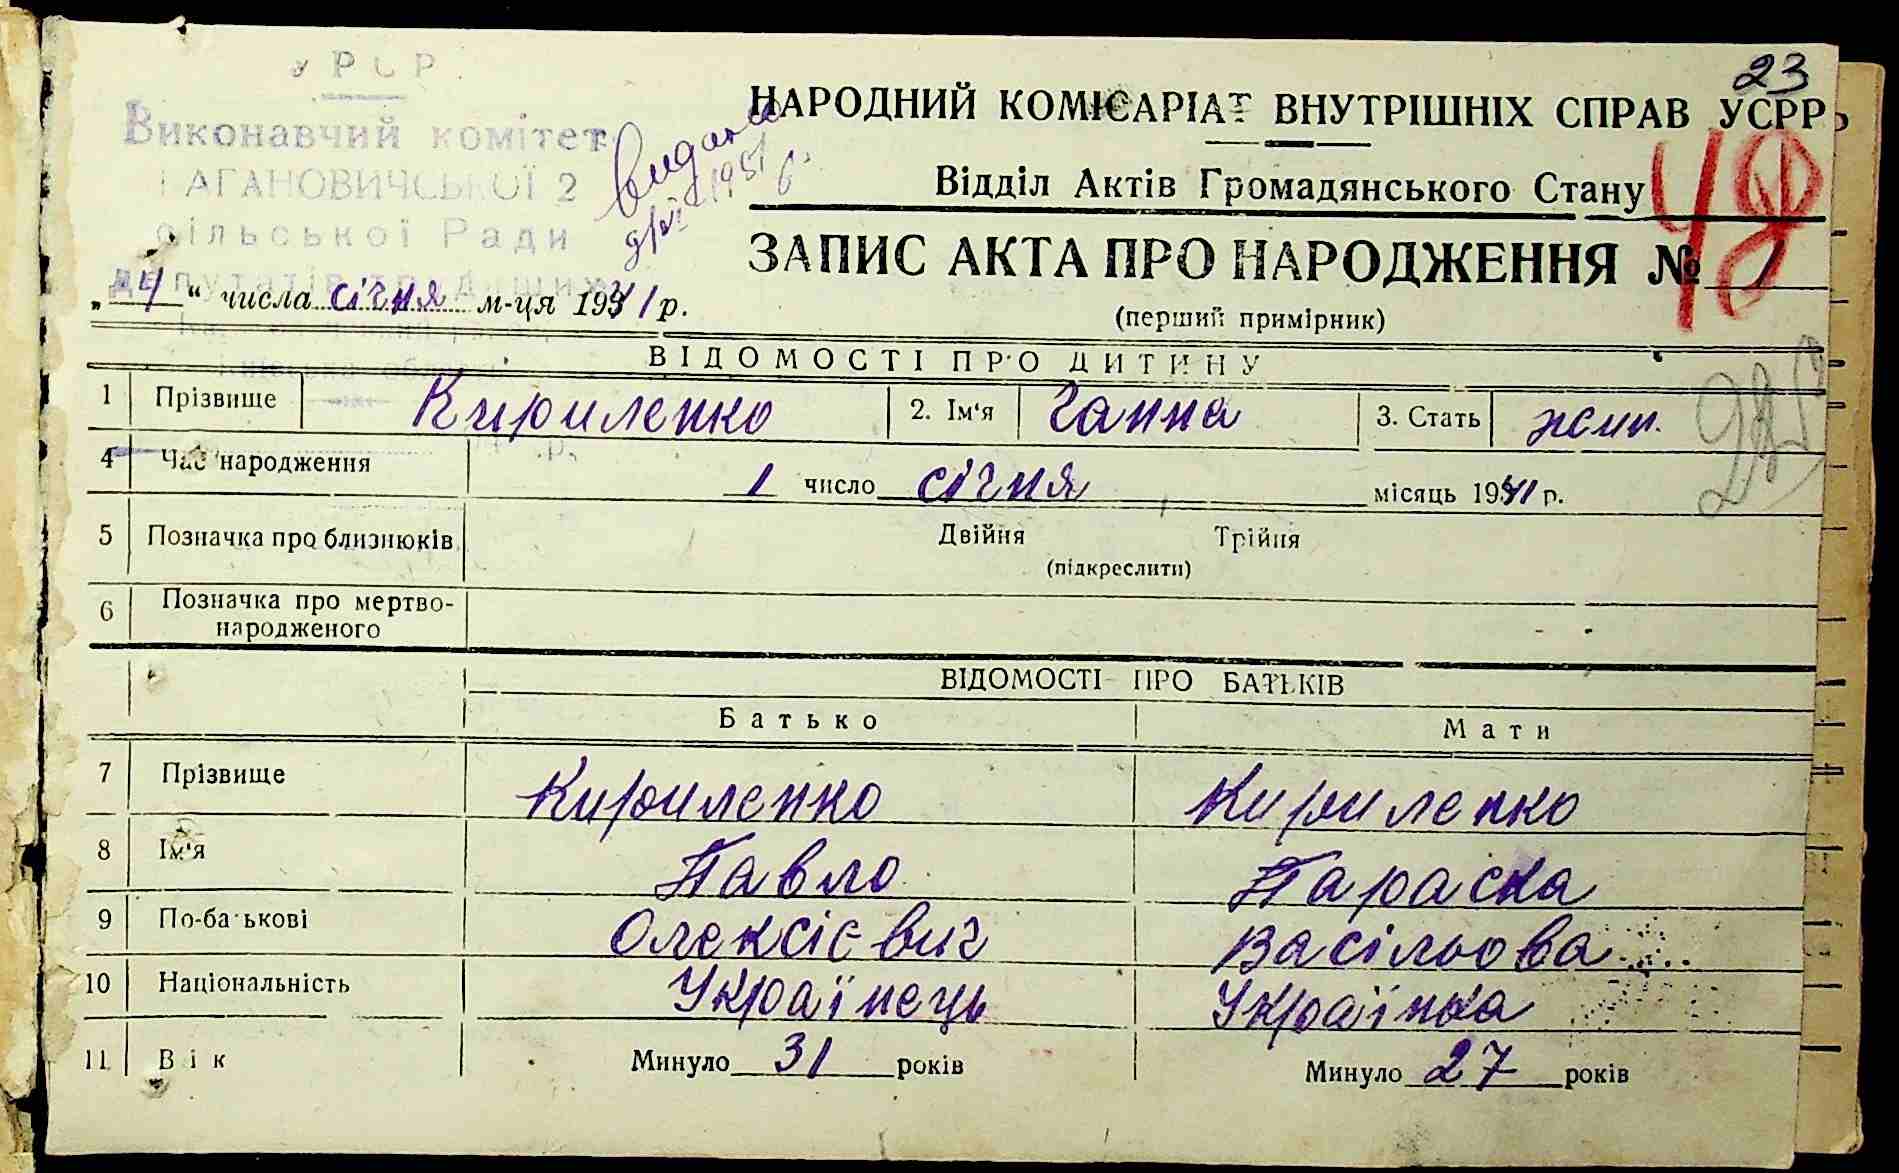 23
УРСР
Виконавчий комітет
КАГАНОВИЧСЬКОЇ 2
сільської Ради
депутатів трудящих
видано
1951
НАРОДНИЙ КОМІСАРІАТ ВНУТРІШНІХ СПРАВ УСРР
Відділ Актів Громадянського Стану
ЗАПИС АКТА ПРО НАРОДЖЕННЯ № 1
48
(перший примірник)
„ 4 “ числа січня м-ця 1941 р.
ВІДОМОСТІ ПРО ДИТИНУ
1 Прізвище Кириленко 2. Ім'я Ганна 3. Стать жін.
4 Час народження 1 число січня місяць 1941 р.
5 Позначка про близнюків Двійня Трійня
(підкреслити)
6 Позначка про мертво-
народженого
ВІДОМОСТІ ПРО БАТЬКІВ
Батько Мати
7 Прізвище Кириленко Кириленко
8 Ім'я Павло Параска
9 По-батькові Олексієвич Васільова
10 Національність Українець Українка
11 Вік Минуло 31 років Минуло 27 років